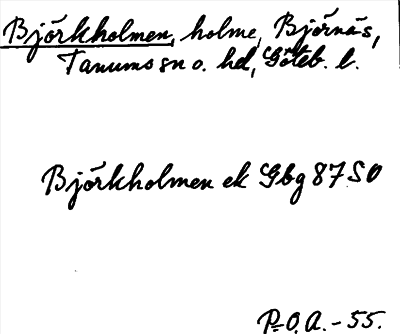 Björkholmen, holme, Björnäs,
Tanums sn o. hd, Göteb. l.
Björkholmen ek Gbg 87 SO
P.O.A. - 55.